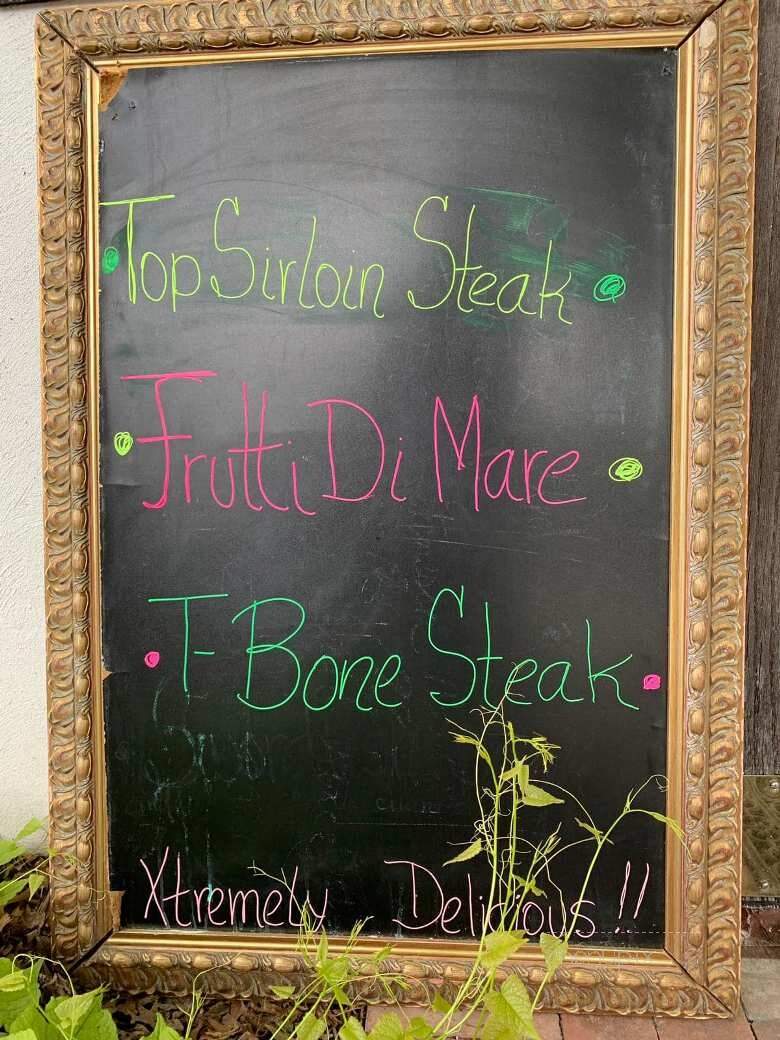 Top Sirloin Steak
Frutti Di Mare
T-Bone Steak
Xtremely Delicious!!